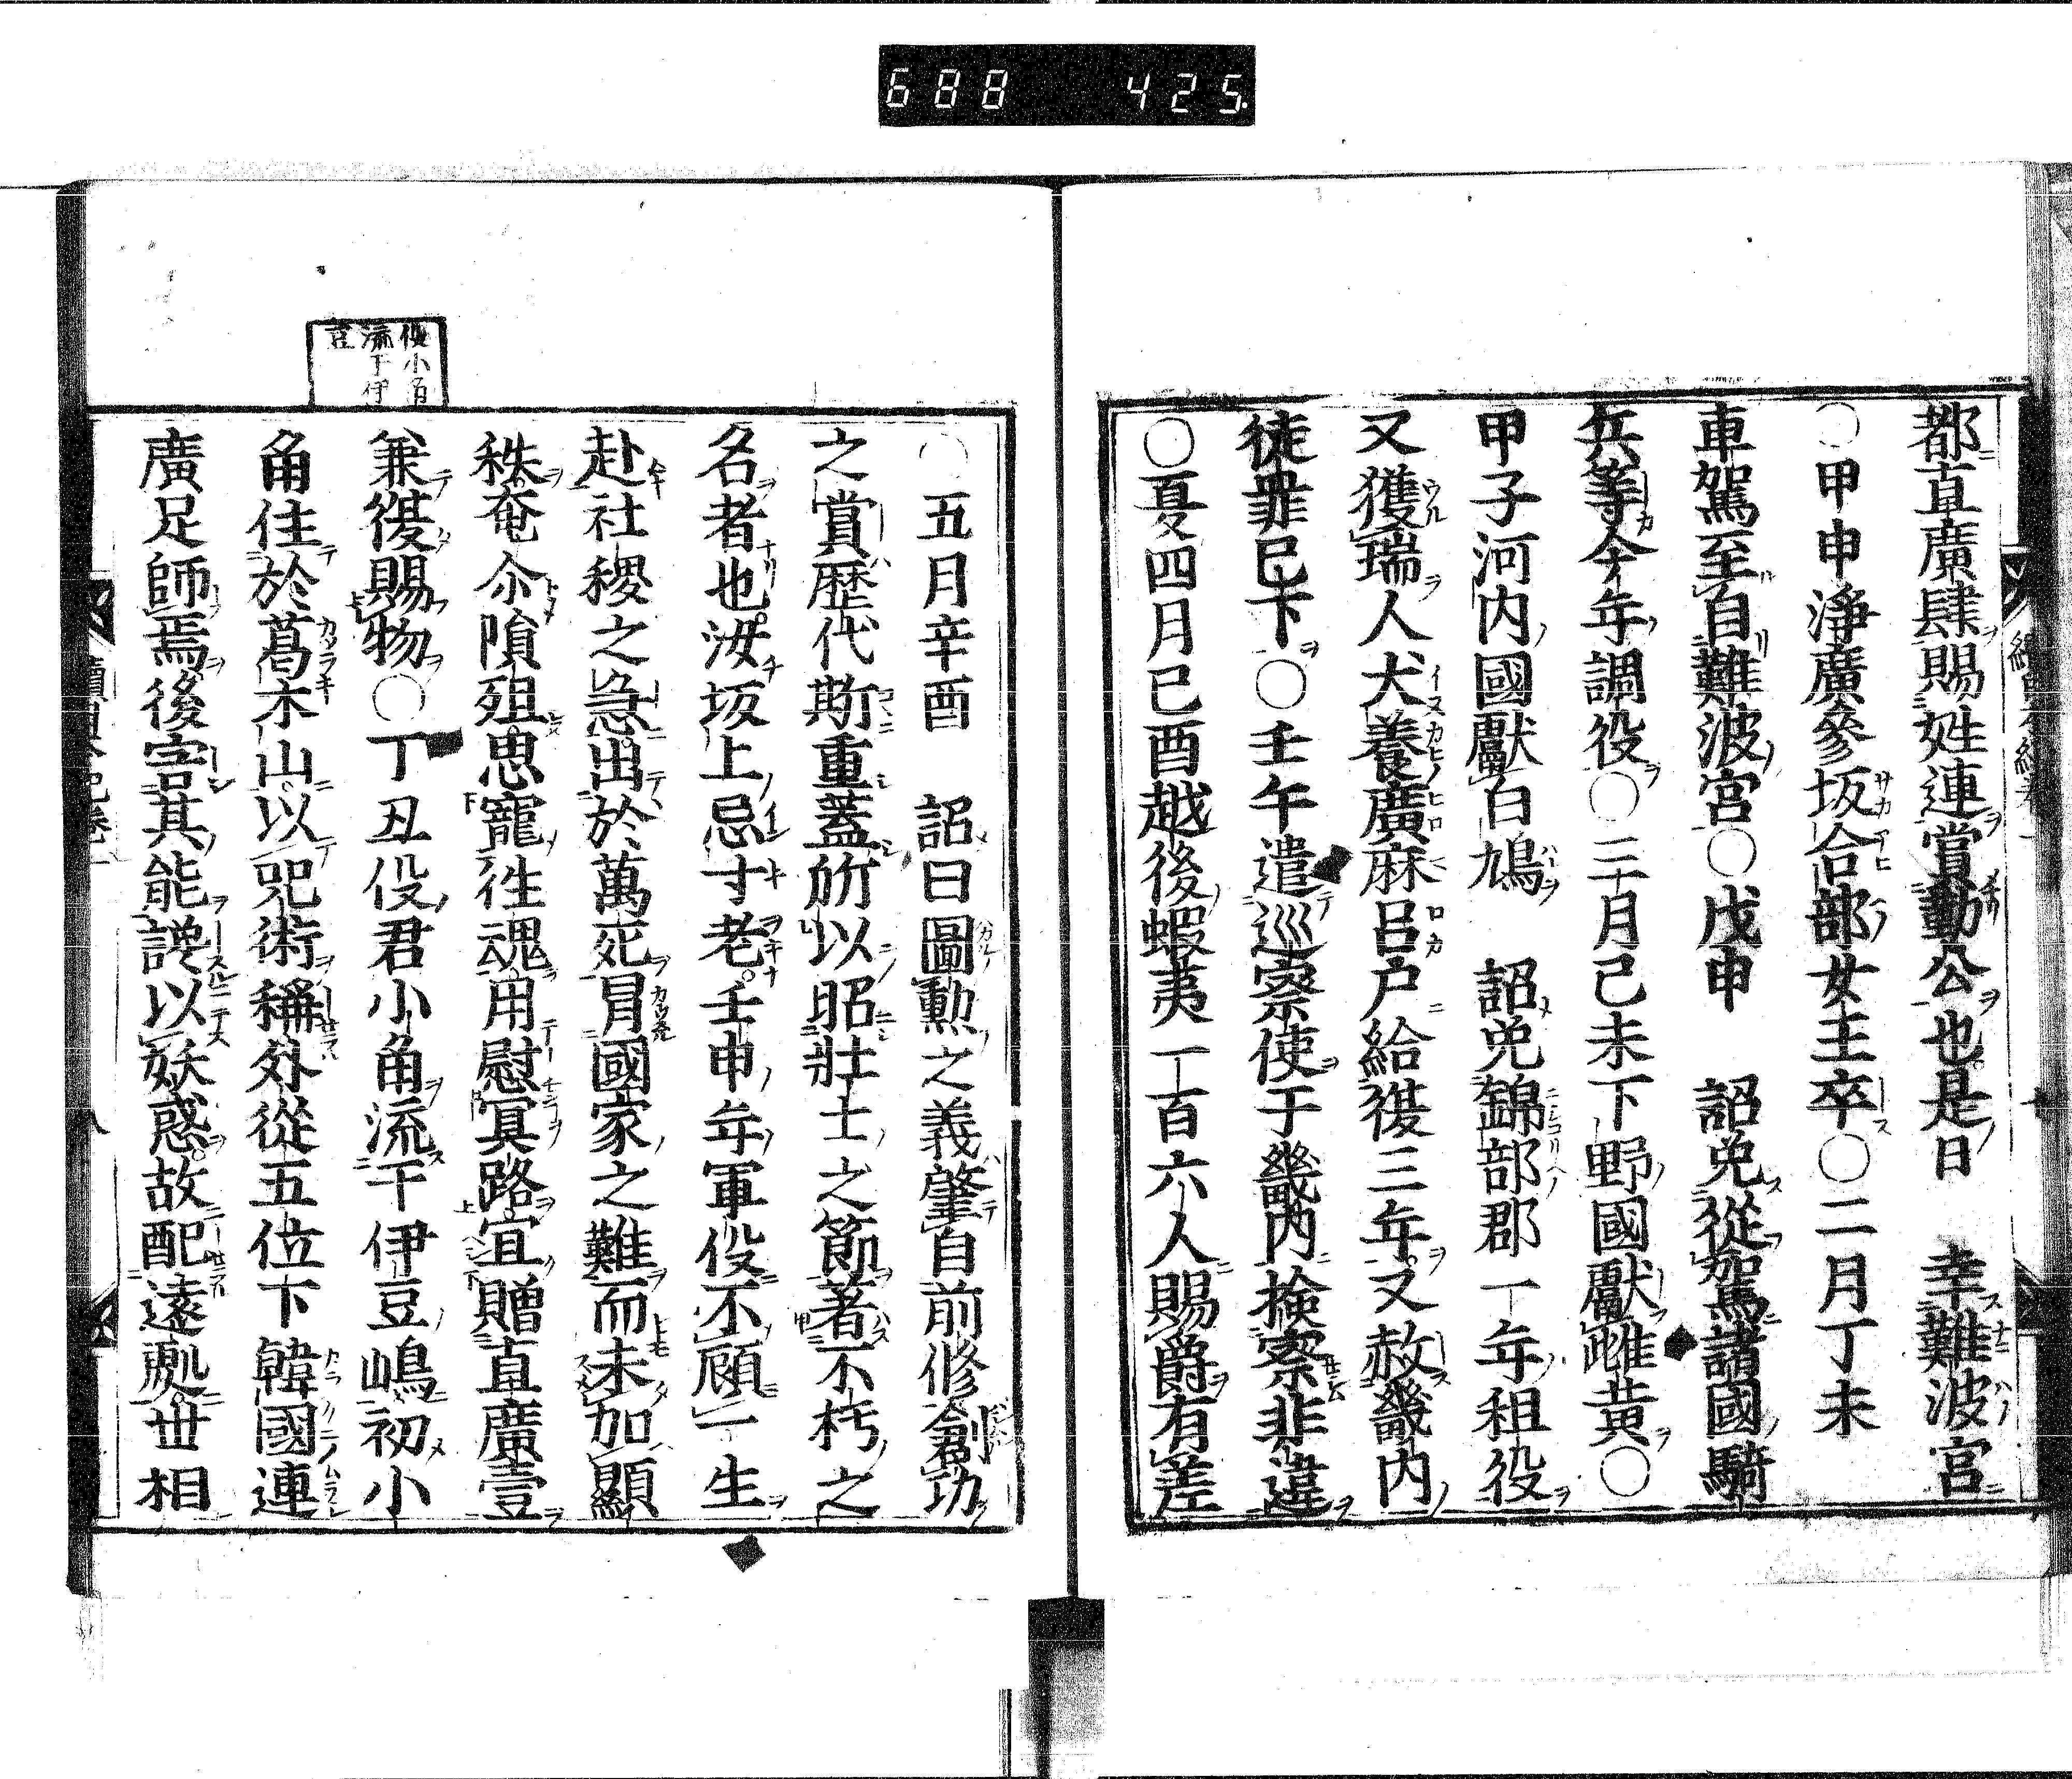 688 425
都直廣肆賜姓連賞勤公也是日 幸難波宮
○甲申淨廣參坂合部女王卒○二月丁未
車駕至自難波宮○戊申 詔免從駕諸國騎
兵等今年調役○三月己未下野國獻雌黄○
甲子河内國獻白鳩 詔免錦部郡一年租役
又獲瑞人犬養廣麻呂戸給復三年又赦畿内
徒罪已下○壬午遣巡察使于畿内検察非違
○夏四月己酉越後蝦夷一百六人賜爵有差
○五月辛酉 詔曰圖勲之義肇自前修創功
之賞歴代斯重蓋所以昭壯士之節著不朽之
名者也汝坂上忌寸老壬申年軍役不顧一生
赴社稷之急出於萬死冒國家之難而未加顯
秩奄尒隕殂思寵徃魂用慰冥路宜贈直廣壹
兼復賜物○丁丑役君小角流于伊豆嶋初小
角住於葛木山以呪術稱外從五位下韓國連
廣足師焉後害其能讒以妖惑故配遠處世相
役小角
流于伊
豆